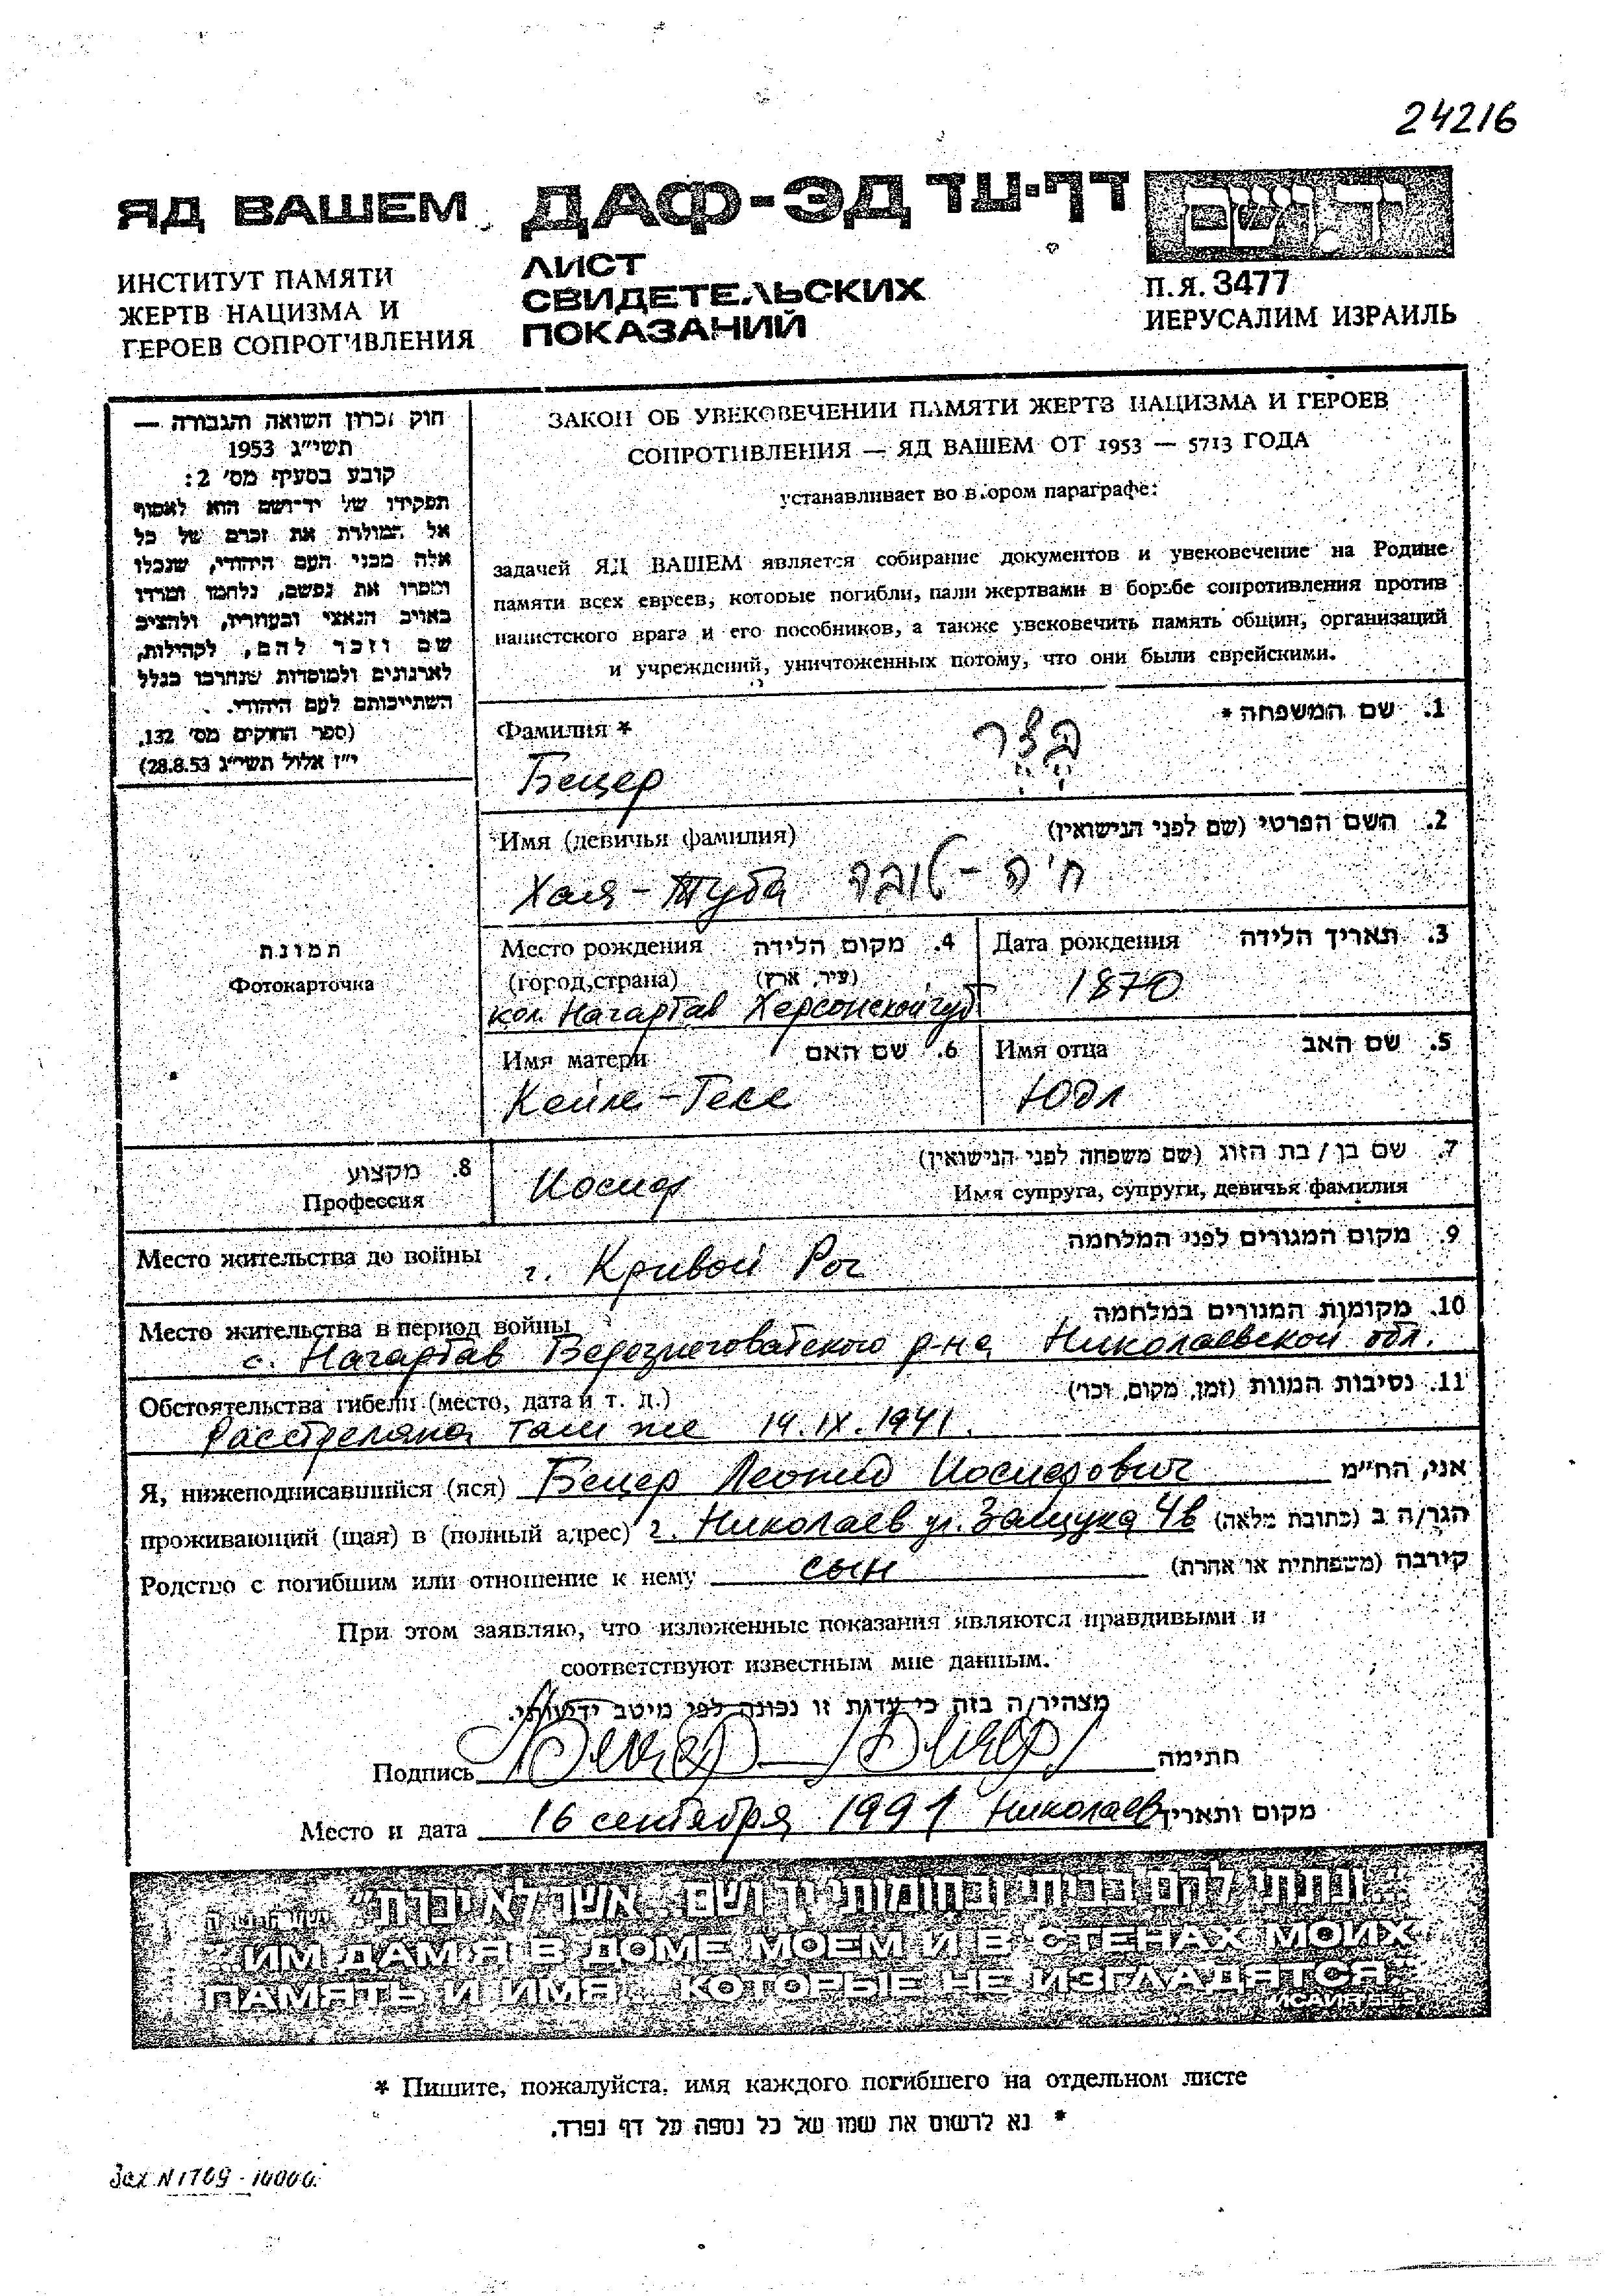 24216
ЯД ВАШЕМ ДАФ-ЭД דף-עד יד ושם
ИНСТИТУТ ПАМЯТИ
ЖЕРТВ НАЦИЗМА И
ГЕРОЕВ СОПРОТИВЛЕНИЯ
ЛИСТ
СВИДЕТЕЛЬСКИХ
ПОКАЗАНИЙ
П.Я. 3477
ИЕРУСАЛИМ ИЗРАИЛЬ
חוק זכרון השואה והגבורה —
תשי"ג 1953
קובע בסעיף מס' 2:
תפקידו של יד־ושם הוא לאסוף
אל המולדת את זכרם של כל
אלה מבני העם היהודי, שנפלו
ומסרו את נפשם, נלחמו ומרדו
באויב הנאצי ובעוזריו, ולהציב
שם וזכר להם, לקהילות,
לארגונים ולמוסדות שנחרבו בגלל
השתייכותם לעם היהודי.
(ספר החוקים מס' 132,
י"ז אלול תשי"ג 28.8.53)
ЗАКОН ОБ УВЕКОВЕЧЕНИИ ПАМЯТИ ЖЕРТВ НАЦИЗМА И ГЕРОЕВ
СОПРОТИВЛЕНИЯ — ЯД ВАШЕМ ОТ 1953 — 5713 ГОДА
устанавливает во втором параграфе:
задачей ЯД ВАШЕМ является собирание документов и увековечение на Родине
памяти всех евреев, которые погибли, пали жертвами в борьбе сопротивления против
нацистского врага и его пособников, а также увековечить память общин, организаций
и учреждений, уничтоженных потому, что они были еврейскими.
Фамилия * 1. שם המשפחה *
Бецер בֶּצֶר
Имя (девичья фамилия) 2. השם הפרטי (שם לפני הנישואין)
Хая-Туба ח'ה-טובה
תמונת
Фотокарточка
Место рождения 4. מקום הלידה
(город,страна) (עיר, ארץ)
кол. Нагартав Херсонской губ
Дата рождения 3. תאריך הלידה
1870
Имя матери 6. שם האם
Кейле-Гесе
Имя отца 5. שם האב
Юдл
8. מקצוע
Профессия
7. שם בן / בת הזוג (שם משפחה לפני הנישואין)
Иосиф
Имя супруга, супруги, девичья фамилия
Место жительства до войны 9. מקום המגורים לפני המלחמה
г. Кривой Рог
Место жительства в период войны 10. מקומות המגורים במלחמה
с. Нагартав Березнеговатского р-на Николаевской обл.
Обстоятельства гибели (место, дата и т. д.) 11. נסיבות המוות (זמן, מקום, וכו')
Расстреляна там же 14.IX.1941.
Я, нижеподписавшийся (яся) Бецер Леонид Иосифович אני, הח"מ
проживающий (щая) в (полный адрес) г. Николаев ул. Защука 4в הגר/ה ב (כתובת מלאה)
Родство с погибшим или отношение к нему сын קירבה (משפחתית או אחרת)
При этом заявляю, что изложенные показания являются правдивыми и
соответствуют известным мне данным.
מצהיר/ה בזה כי עדות זו נכונה לפי מיטב ידיעותי.
Подпись Бецер /Бецер/ חתימה
Место и дата 16 сентября 1991 Николаев מקום ותאריך
"...ונתתי להם בביתי ובחומותי יד ושם... אשר לא יכרת"
"...ИМ ДАМ Я В ДОМЕ МОЕМ И В СТЕНАХ МОИХ
ПАМЯТЬ И ИМЯ... КОТОРЫЕ НЕ ИЗГЛАДЯТСЯ."
* Пишите, пожалуйста, имя каждого погибшего на отдельном листе
* נא לרשום את שמו של כל נספה על דף נפרד.
Зак N 1709 - 10000.